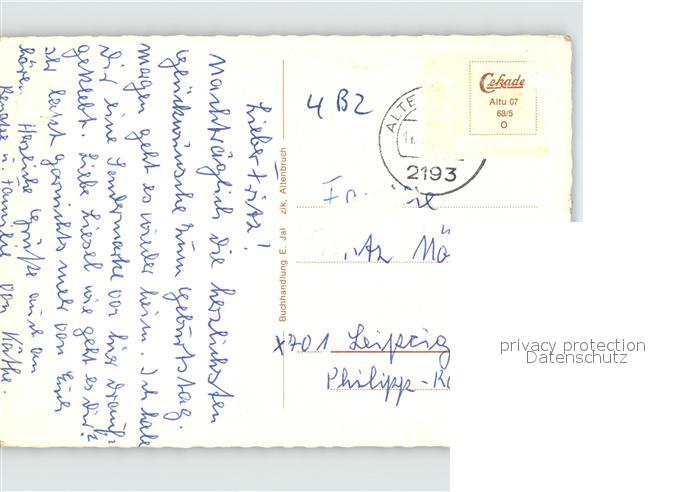 Lieber Fritz!
Nachträglich die herzlichsten
Glückwünsche zum Geburtstag.
Morgen geht es wieder heim. Ich habe
Dir eine Sondermarke von hier drauf=
geklebt. Liebe Liesel wie geht es Dir?
Ihr lasst garnichts mehr von Euch
hören. Herzliche Grüße auch an
Renate u. Familie von Käthe.
Buchhandlung E. Jal zik, Altenbruch
4 B2
ALTE
2193
Cekade
Altu 07
68/5
O
X701 Leipzig
Philipp-Ro
privacy protection
Datenschutz